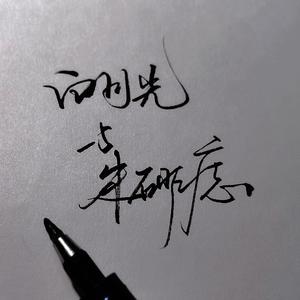 白月光
与
朱砂痣